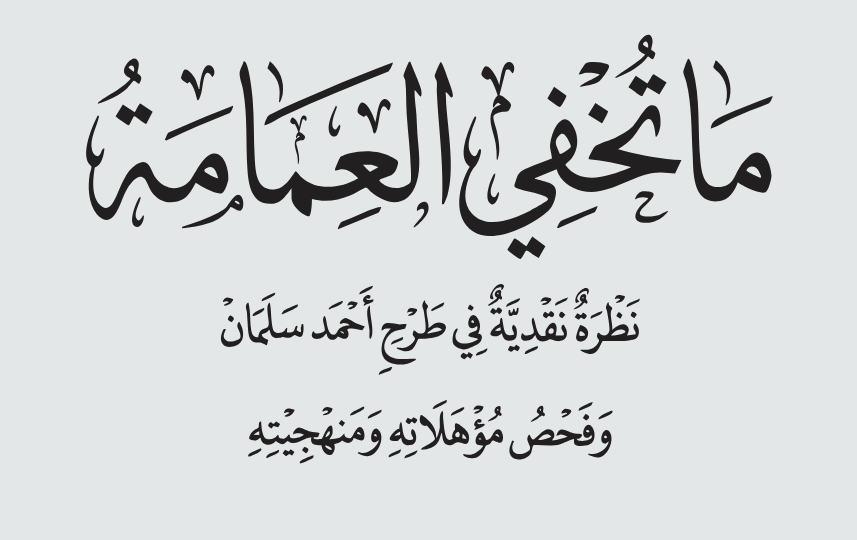 مَا تُخْفِي العِمَامَةُ
نَظْرَةٌ نَقْدِيَّةٌ فِي طَرْحِ أَحْمَد سَلَمَانْ
وَفَحْصُ مُؤْهَلَاتِهِ وَمَنْهَجِيْتِهِ